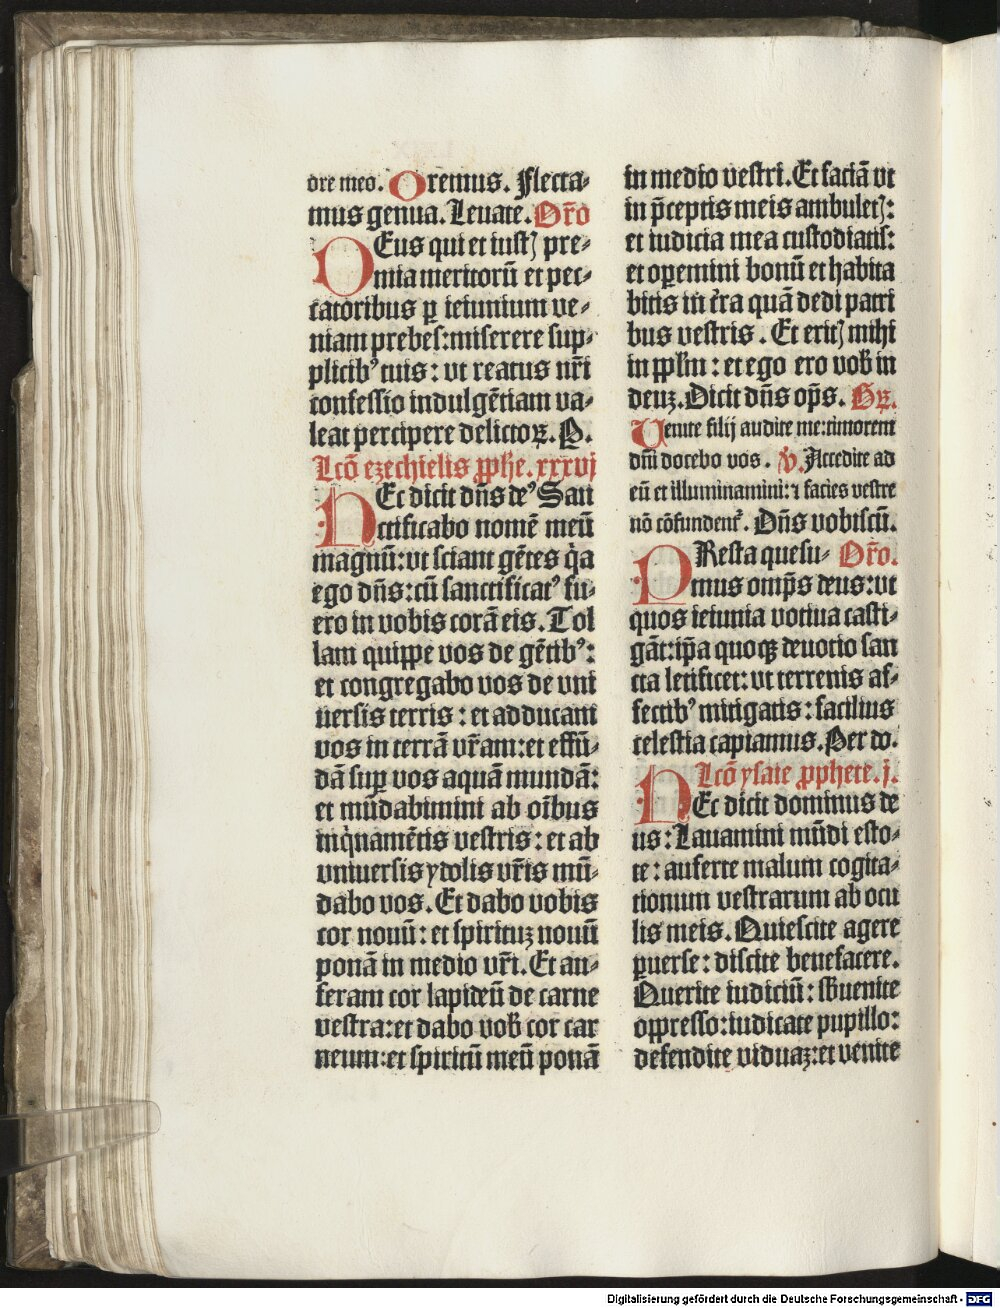 dre meo. Oremus. Flecta⸗
mus genua. Leuate. Or̃o
DEus qui et iust⁊ pre⸗
mia meritorũ et pec⸗
catoribus ꝑ ieiunium ve⸗
niam prebes:miserere sup⸗
plicibꝰ tuis: vt reatus nr̃i
confessio indulgẽtiam va⸗
leat percipere delictoꝝ. P.
Lcõ ezechielis ꝓphe. xxxvj
HEc dicit dñs deꝰ San
ctificabo nomẽ meũ
magnũ: vt sciant gẽtes q̃a
ego dñs: cũ sanctificatꝰ fu⸗
ero in vobis corã eis. Tol
lam quippe vos de gẽtibꝰ:
et congregabo vos de vni
uersis terris: et adducam
vos in terrã vr̃am: et effũ⸗
dã suꝑ vos aquã mundã:
et mũdabimini ab oĩbus
inq̃namẽtis vestris: et ab
vniuersis ydolis vr̃is mũ⸗
dabo vos. Et dabo vobis
cor nouũ: et spirituꝫ nouũ
ponã in medio vr̃i. Et au⸗
feram cor lapideũ de carne
vestra: et dabo vob̃ cor car
neum: et spiritũ meũ ponã
in medio vestri. Et faciã vt
in p̃ceptis meis ambulet⁊:
et iudicia mea custodiatis:
et oꝑemini bonũ et habita
bitis in t̃ra quã dedi patri
bus vestris. Et erit⁊ mihi
in ppl̃m: et ego ero vob̃ in
deuꝫ. Dicit dñs op̃s. Gꝝ.
Uenite filij audite me: timorem
dñi docebo vos. ꝟ. Accedite ad
eũ et illuminamini: ⁊ facies vestre
nõ cõfundent̃. Dñs vobiscũ.
PResta quesu⸗ Or̃o.
mus omp̃s deus: vt
quos ieiunia votiua casti⸗
gãt: ip̃a quoqꝫ deuotio san
cta letificet: vt terrenis af⸗
fectibꝰ mitigatis: facilius
celestia capiamus. Per do.
Lcõ ysaie ꝓphete. j.
HEc dicit dominus de
us: Lauamini mũdi esto⸗
te: auferte malum cogita⸗
tionum vestrarum ab ocu
lis meis. Quiescite agere
ꝑuerse: discite benefacere.
Querite iudiciũ: sb̃uenite
oppresso: iudicate pupillo:
defendite viduaꝫ: et venite
Digitalisierung gefördert durch die Deutsche Forschungsgemeinschaft - DFG